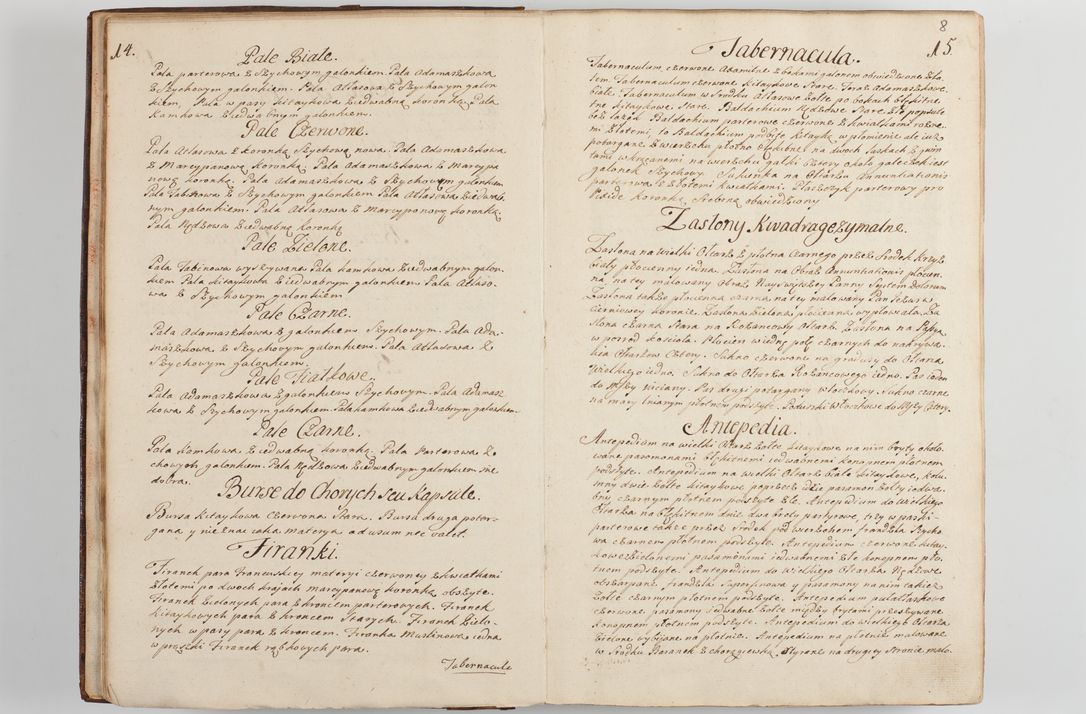 14.
Pale Białe.
Pala parterowa z Szychowym galonkiem. Pala Adamaszkowa
z Szychowym galonkiem. Pala Atłasowa z Szychowym galon
kiem, Pala w pasy kitaykowa z iedwabną koronką. Pala
kamkowa z iedwabnym galonkiem.
Pale Czerwone.
Pala Atłasowa z koronką Szychową nowa. Pala Adamaszkowa
z Marcypanową koronką. Pala Adamaszkowa z Marcypa
nową koronką. Pala Adamaszkowa z Szychowym galonkiem
Pala Tabinowa z Szychowym galonkiem Pala Atłasowa z iedwab
nym galonkiem. Pala Atłasowa z marcypanową koronką.
Pala Rądzowa z iedwabną koronką
Pale Zielone.
Pala Tabinowa wyszywana Pala kamkowa z iedwabnym galon-
kiem Pala kitaykowa z iedwabnym galonkiem. Pala Atłaso-
wa z Szychowym galonkiem
Pale Czarne.
Pala Adamaszkowa z galonkiem Szychowym. Pala Ada-
maszkowa z Szychowym galonkiem. Pala Atłasowa z
Szychowym galonkiem.
Pale Fiałkowe.
Pala Adamaszkowa z galonkiem Szychowym. Pala Adamasz
kowa z Szychowym galonkiem. Pala kamkowa z iedwabnym galonkiem.
Pale Czarne.
Pala Kamkowa z iedwabną koronką. Pala Parterowa z
chowym galonkiem. Pala Rądzkowa z iedwabnym galonkiem nie
dobra.
Burse do Chorych seu Kapsule.
Bursa kitaykowa czerwona Stara. Bursa druga potar-
gana y nieznac iaka materya ad usum nec valet.
Firanki.
Firanek para Francuskiey materyi czerwoney z kwiatkami
złotemi po dwoch kraiach marcypanową koronką obszyte.
Firanek zielonych para z kroncem parterowych. Firanek
kitaykowych para z kroncem Starych. Firanek Zielo-
nych w pasy para z kroncem. Firanka Muslinowa iedna
w prążki Firanek rąbkowych para.
Tabernacula
8
15
Tabernacula.
Tabernaculum czerwone Axamitne z bokami galonem obwiedzione zło
tem. Tabernaculum czerwone kitaykowe Stare. Toraż Adamaszkowe.
białe. Tabernaculum w Srodku Atłasowe żołte po bokach błękitne
kitaykowe Stare. Baldachium Rądzowe Stare
Baldachium parterowe czerwone z kwiatkami
złotemi, to Baldachium podszyte kitayką w płomienie ale iuż
potargane z wierzchu płotno błękitne na dwoch laskach z
tami wkręcanemi na wierzchu gałki cztery około
galonek Szychowy. Sukienka na Ołtarzu Annuntiationis
parterowa z złotemi kwiatkami. Płaszczyk parterowy pro
Pixide koronką srebrną obwiedziony
Zasłony Kwadragezymalne.
Zasłona na wielki Ołtarz z płotna czarnego przez Srodek krzyż
biały płocienny iedna. Zasłona na Obraz Annuntiationis płocien.
na tey malowany obraz Nayswiętszey Panny Septem Dolorum
Zasłona także płocienna czarna na tey malowany Pan Jezus w
cierniowey koronie. Zasłona zielona płocienna wypłowiała. Za
słona czarna Stara na Rożancowy Ołtarz. Zasłona na
w posrzod koscioła. Płocien wiedną poł czarnych do nakrywa-
nia Ołtarzow cztery. Sukno czerwone na gradusy do Ołtarza
Wielkiego iedno. Sukno do Ołtarza Rożancowego iedno. Pas ieden
do Mszy niciany. Pas drugi potargany włoczkowy. Sukno czarne
na mary lnianym płotnem podszyte. Poduszki włoczkowe do Mszy cztery.
Antepedia.
Antepedium na wielki Ołtarz żołte kitaykowe na nim bryty około-
wane pasamonami błękitnemi iedwabnemi konopnem płotnem
podszyte. Antepedium na wielki Ołtarz białe kitaykowe, kolu-
mny dwie żołte kitaykowe poprzecz idzie pasamon żołty iedwa-
bny czarnym płotnem podszyte złe. Antepedium do wielkiego
Ołtarza na błękitnem dnie dwa bryty partyrowe, trzy w paski
parterowe także przez Srodek pod wierzchem frandzla Szycho
wa czarnem płotnem podszyte. Antepedium czerwone kitay-
kowe z zielonemi pasamonami iedwabnemi złe konopnem pło-
tnem podszyte. Antepedium do wielkiego Ołtarza Rądzowe
obszarpane. frandzla Superfinowa y pasamony na nim także
żołte czarnym płotnem podszyte. Antepedium
czerwone, pasamony iedwabne żołte między brytami przeszywane
konopnem płotnem podszyte. Antepedium do wielkiego Ołtarza
zielone wybijane na płotnie. Antepedium na płotnie malowane
w Srodku Baranek z chorągiewką. Złożone na drugiey stronie malo.